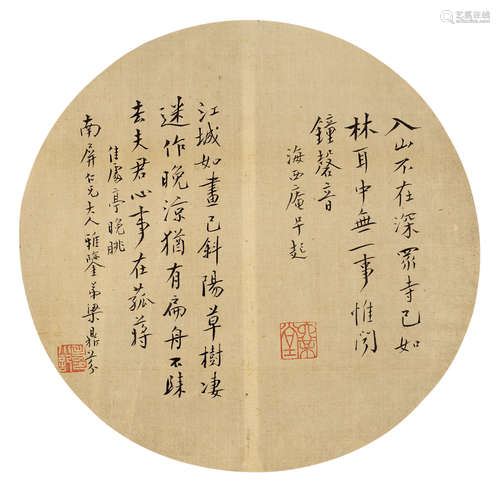 入山不在深眾寺已如
林耳中無一事惟聞
鐘磬音
海西庵早起
江城如畫已斜陽草樹淒
迷作晚涼猶有扁舟不
去夫君心事在菰蔣
佳處亭晚眺
南屏仁兄大人雅鑒弟梁鼎芬